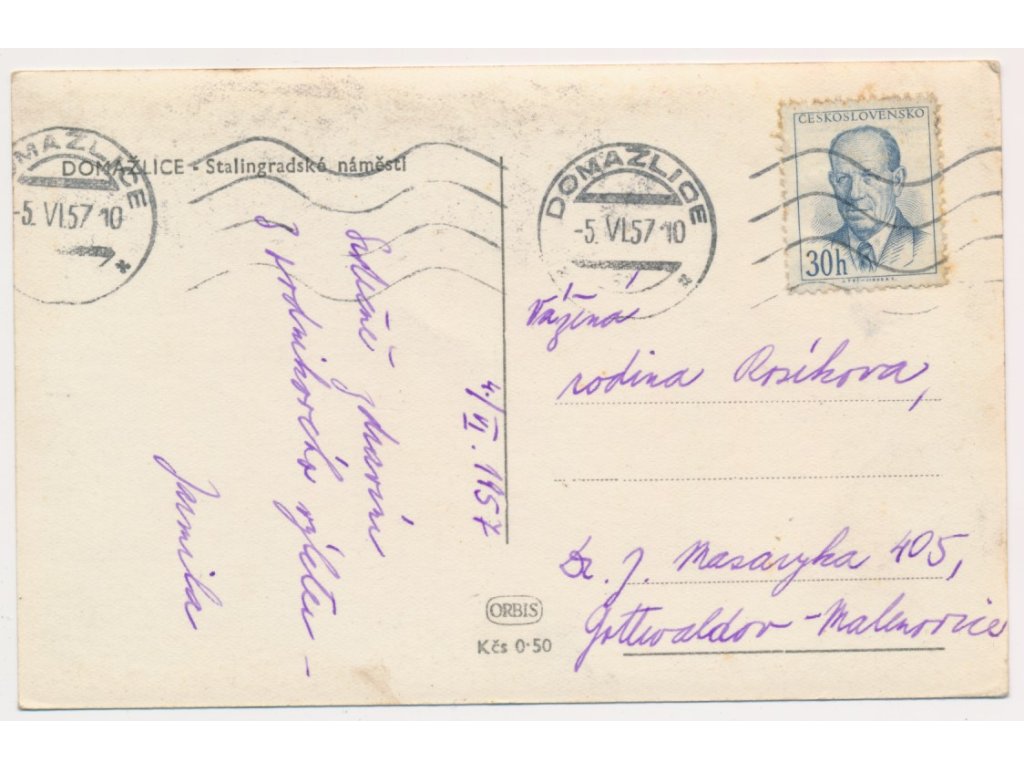 DOMAŽLICE - Stalingradské náměstí
DOMAŽLICE
-5. VI.57-10
*
DOMAŽLICE
-5. VI.57-10
*
ČESKOSLOVENSKO
30h
Srdečné zdravení
z
výletu -
Jarmila
4./VI. 1957
Vážená
rodina Rosíkova,
Dr. J. Masaryka 405,
Gottwaldov - Malenovice
ORBIS
Kčs 0·50